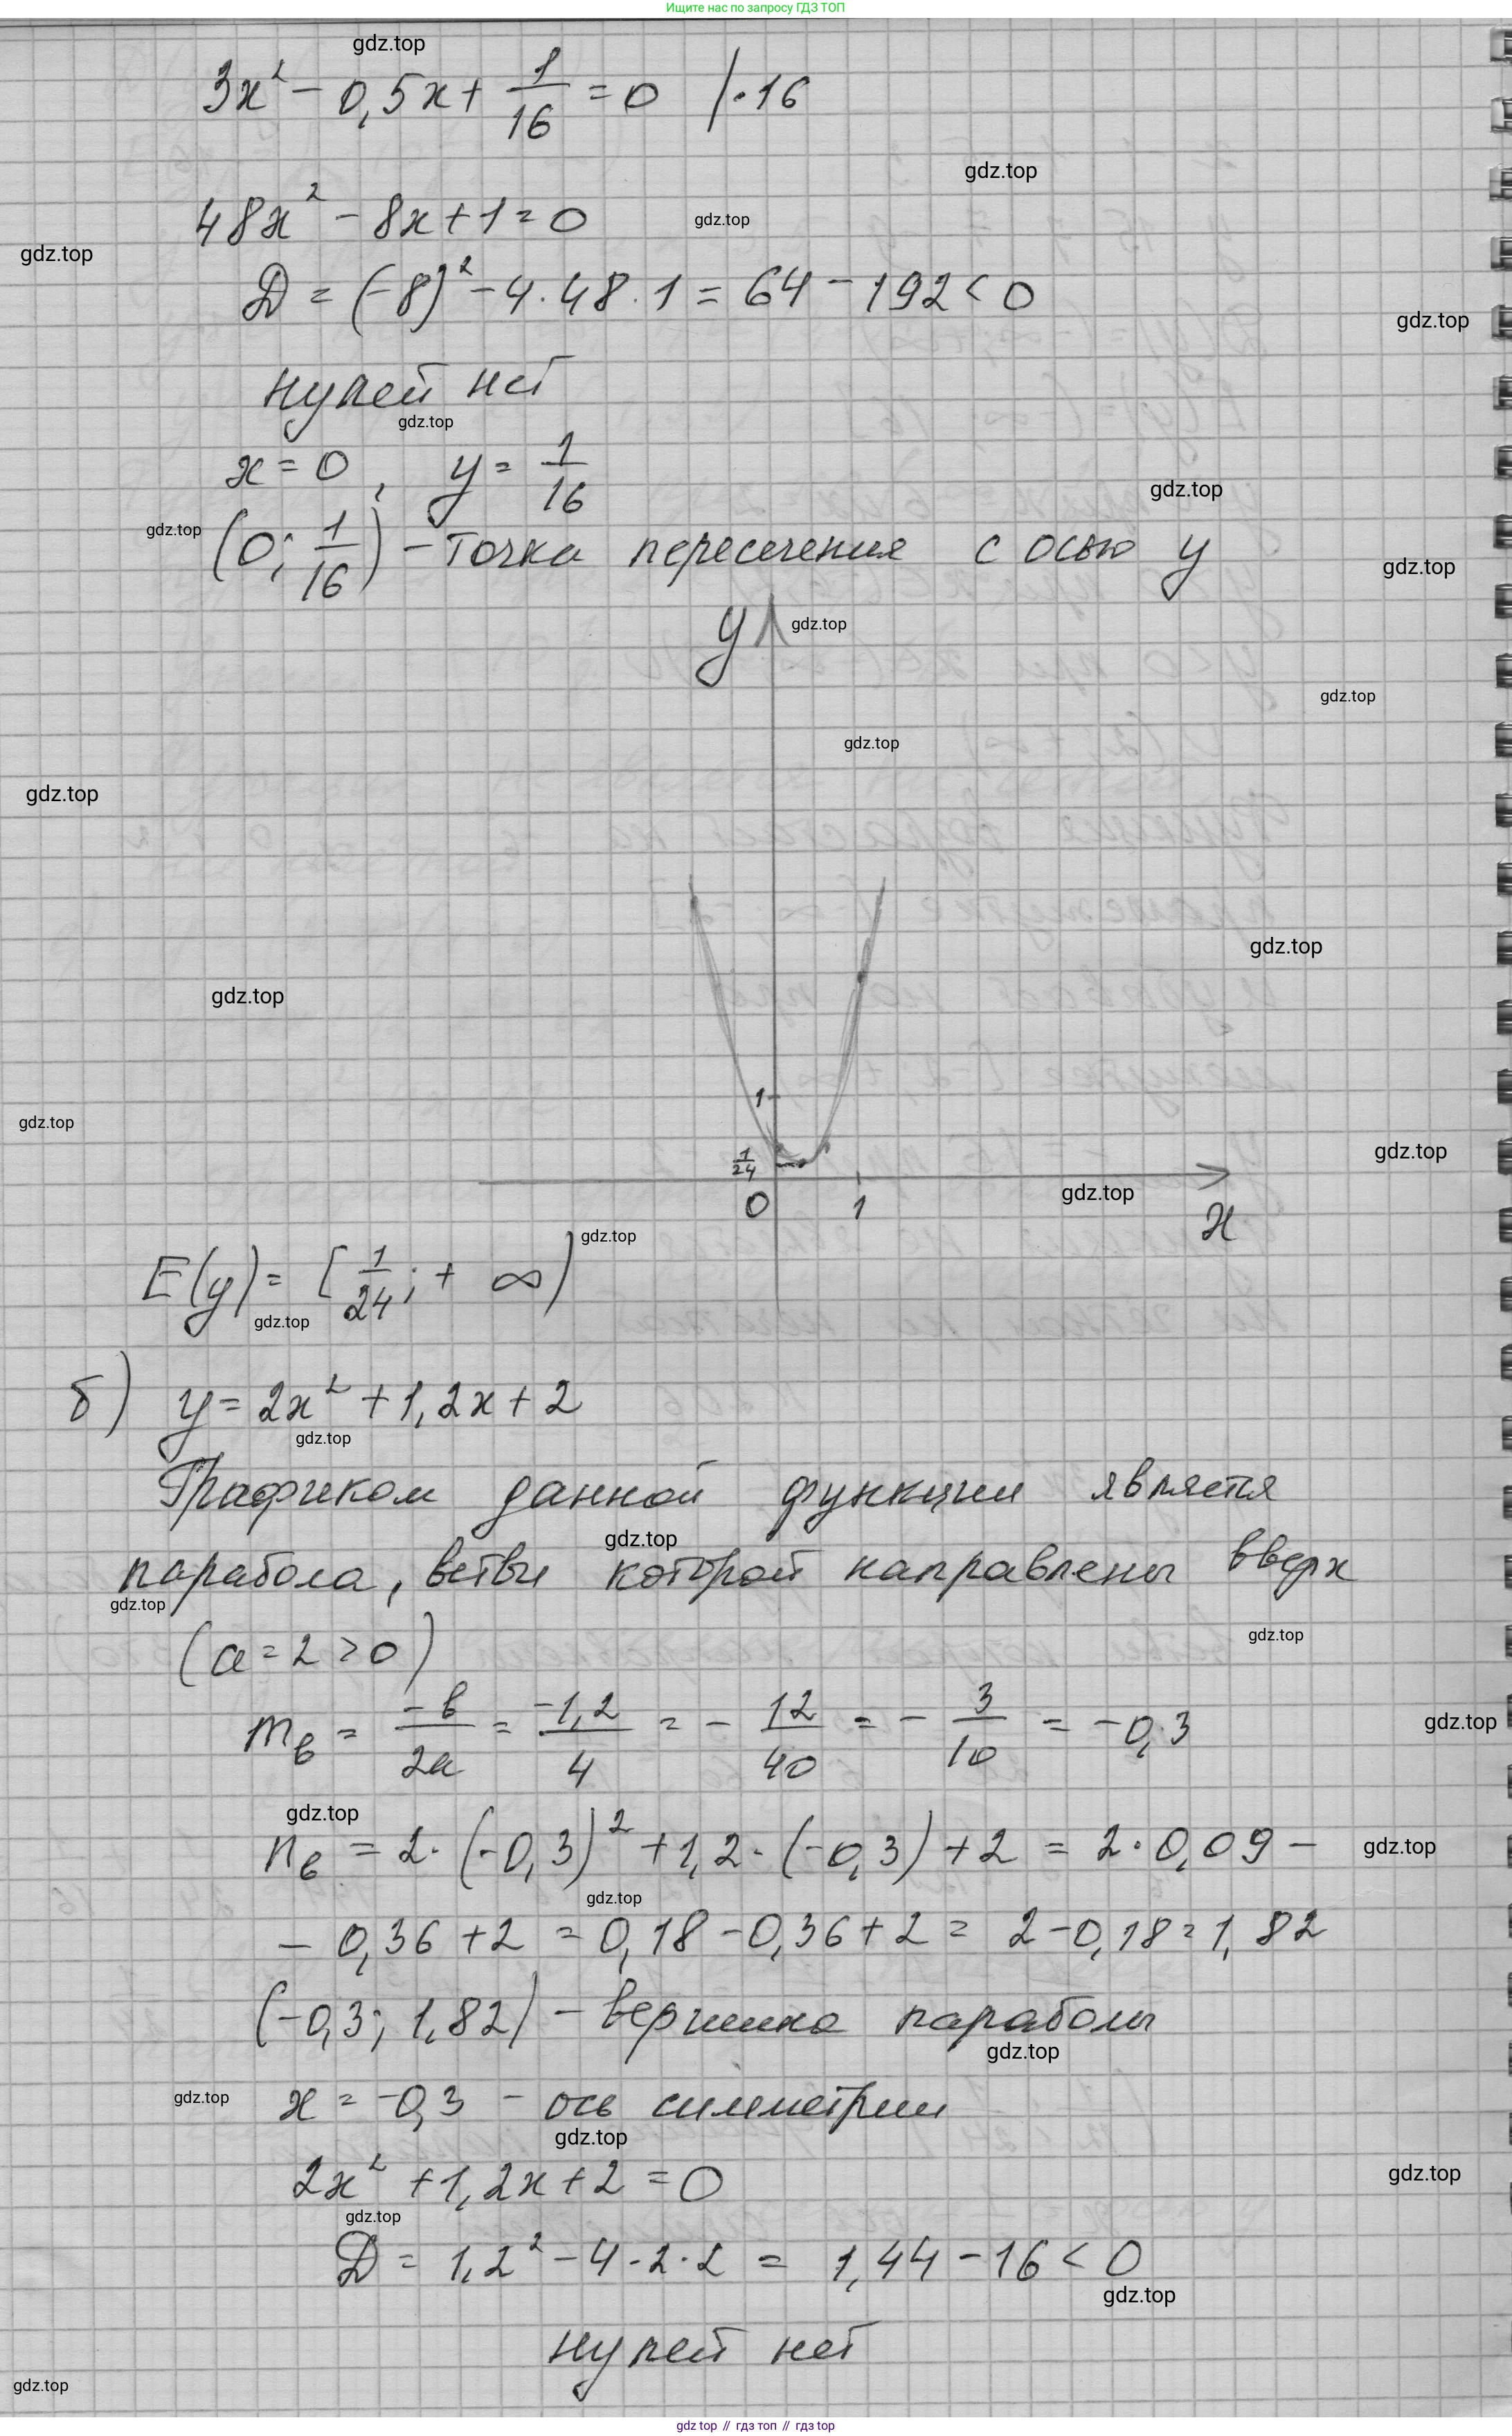 Ищите нас по запросу ГДЗ ТОП
gdz.top
3x² - 0,5x + 1/16 = 0 /·16
gdz.top
48x² - 8x + 1 = 0
gdz.top
gdz.top
D = (-8)² - 4·48·1 = 64 - 192 < 0
gdz.top
нулей нет
gdz.top
x = 0, y = 1/16
gdz.top
gdz.top
(0; 1/16) - точка пересечения с осью y
gdz.top
y
gdz.top
gdz.top
gdz.top
gdz.top
gdz.top
gdz.top
1
gdz.top
1/24
gdz.top
0 1
gdz.top
x
gdz.top
E(y) = [1/24; + ∞)
gdz.top
б) y = 2x² + 1,2x + 2
gdz.top
Графиком данной функции является
gdz.top
парабола, ветви которой направлены вверх
gdz.top
(a = 2 > 0)
gdz.top
mв = -в/2a = -1,2/4 = - 12/40 = - 3/10 = -0,3
gdz.top
gdz.top
nв = 2·(-0,3)² + 1,2·(-0,3) + 2 = 2·0,09 -
gdz.top
gdz.top
- 0,36 + 2 = 0,18 - 0,36 + 2 = 2 - 0,18 = 1,82
(-0,3; 1,82) - вершина параболы
gdz.top
gdz.top
x = -0,3 - ось симметрии
gdz.top
2x² + 1,2x + 2 = 0
gdz.top
gdz.top
D = 1,2² - 4·2·2 = 1,44 - 16 < 0
gdz.top
нулей нет
gdz.top
gdz top // гдз топ // гдз top